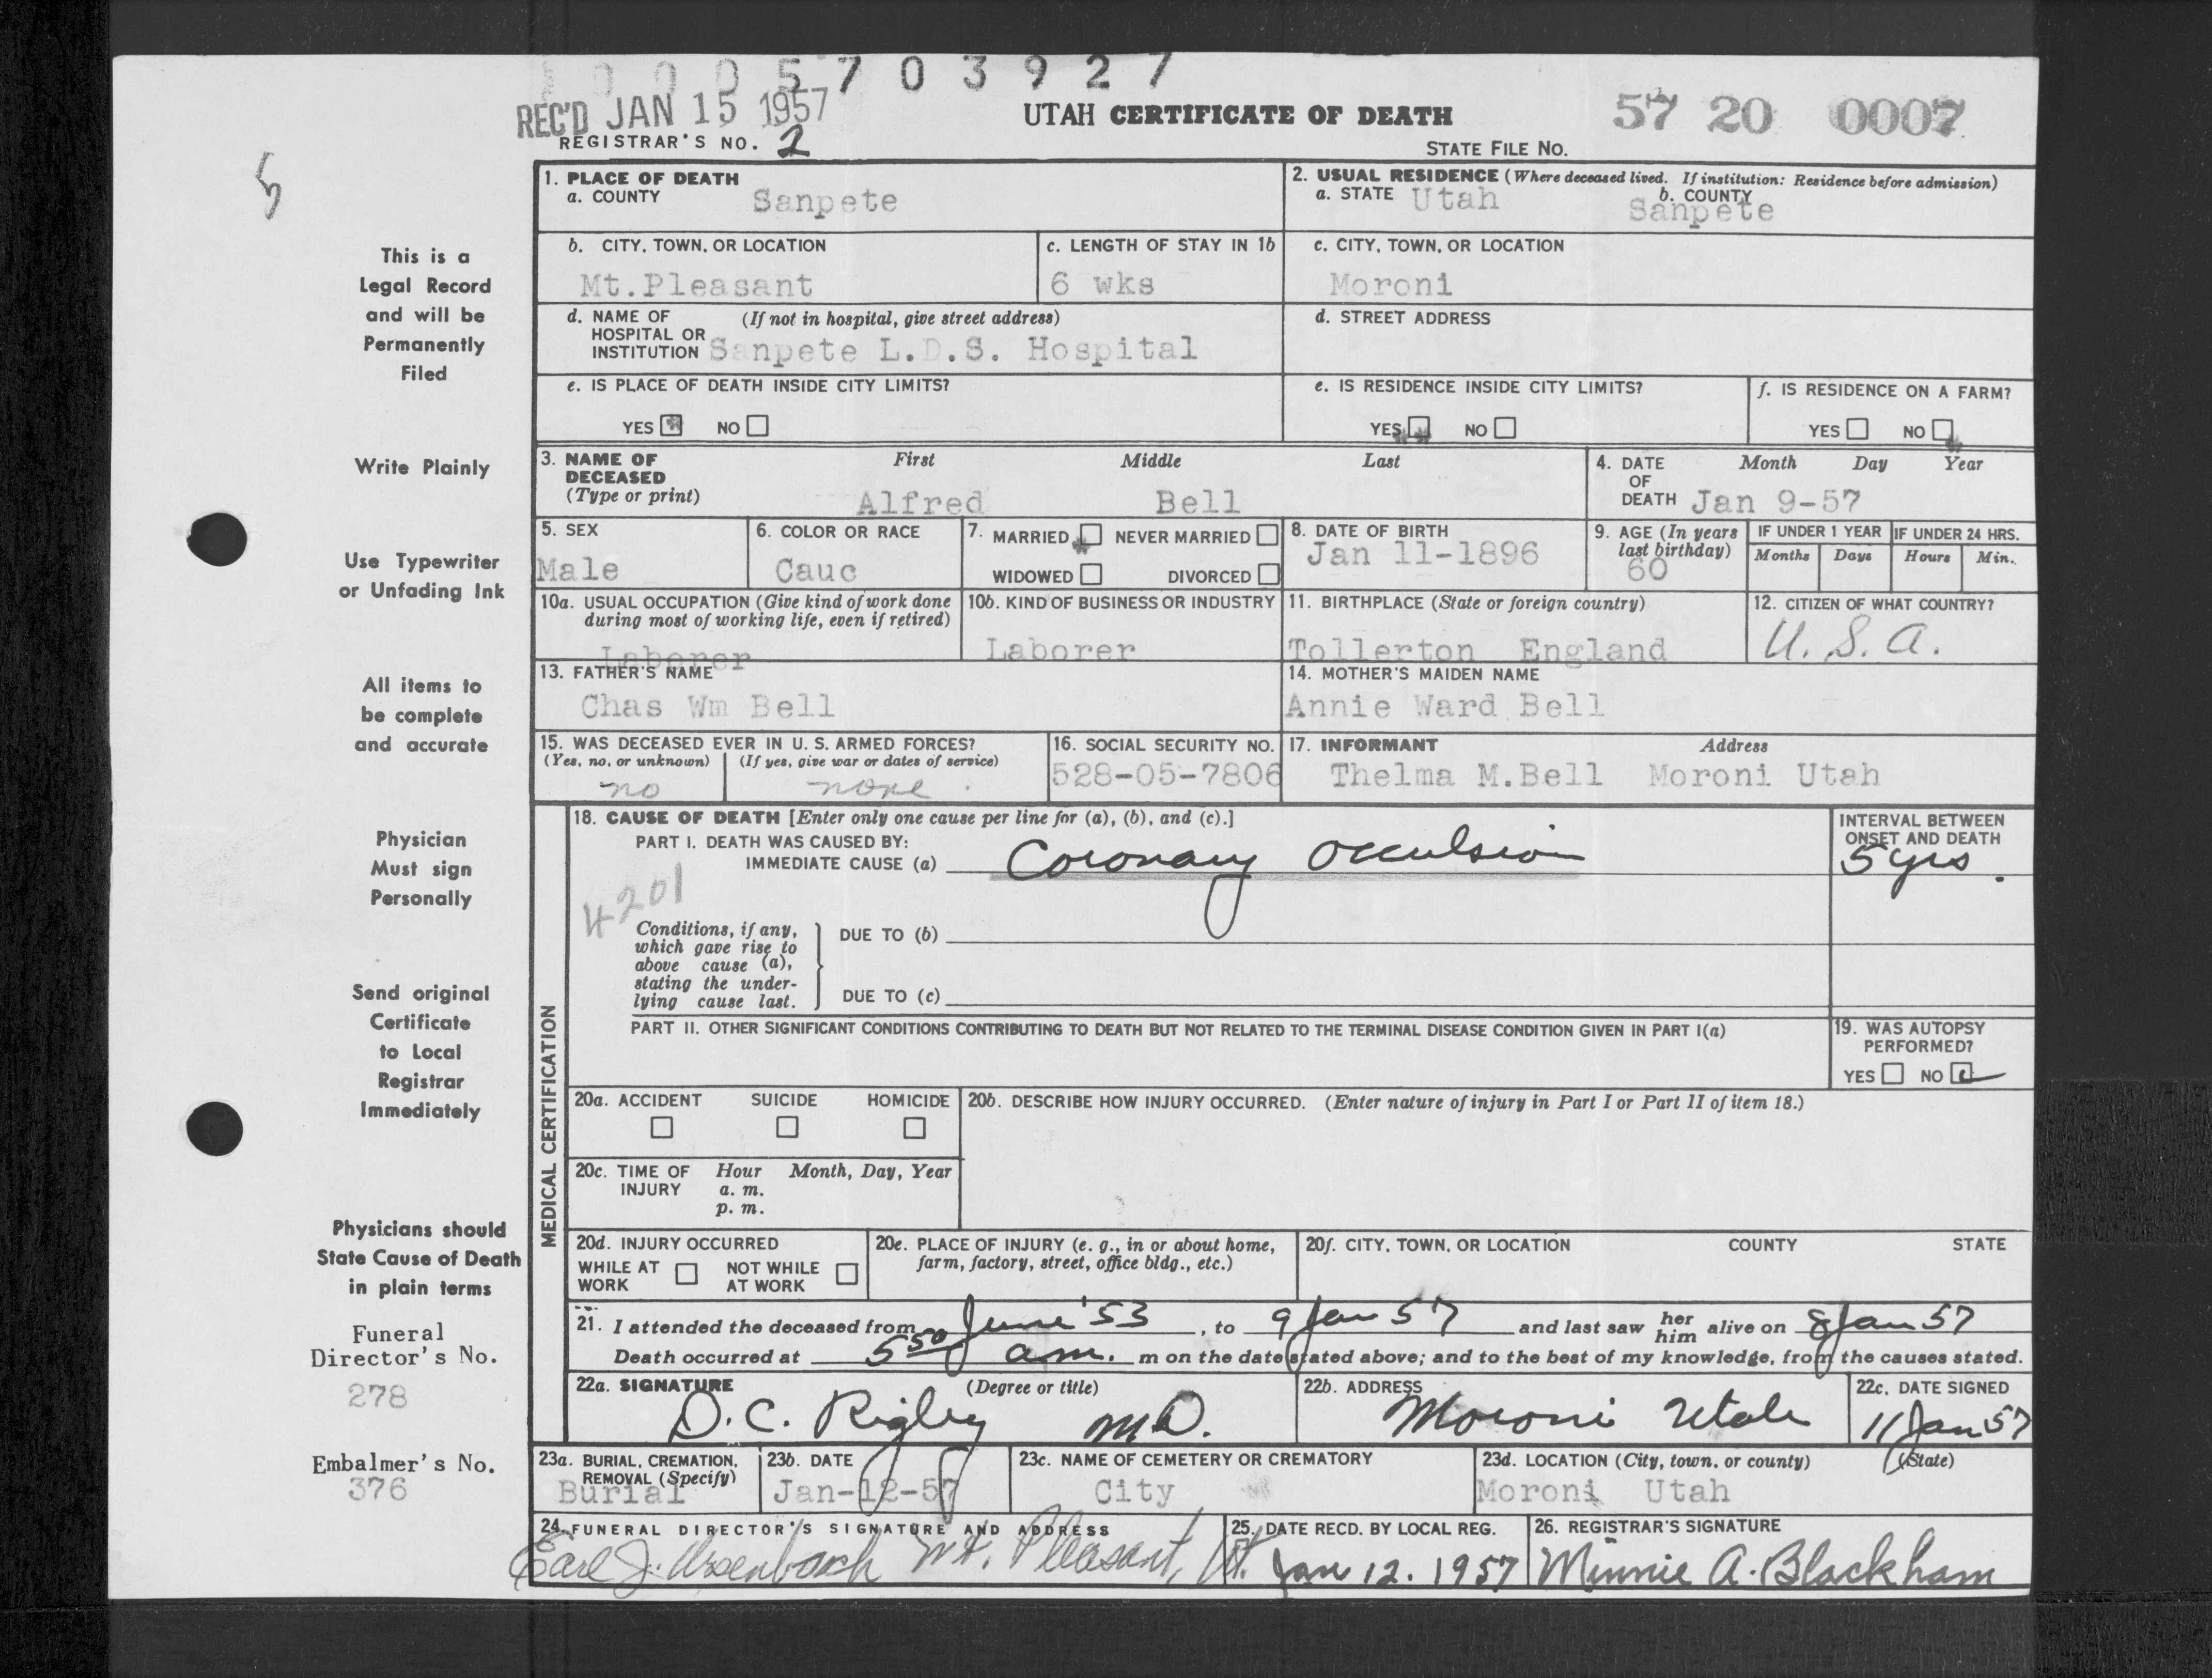 0 0 0 5 7 0 3 9 2 7
REC'D JAN 15 1957
UTAH CERTIFICATE OF DEATH
57 20 0007
REGISTRAR'S NO. 2
STATE FILE NO.
5
This is a
Legal Record
and will be
Permanently
Filed
Write Plainly
Use Typewriter
or Unfading Ink
All items to
be complete
and accurate
Physician
Must sign
Personally
Send original
Certificate
to Local
Registrar
Immediately
Physicians should
State Cause of Death
in plain terms
Funeral
Director's No.
278
Embalmer's No.
376
1. PLACE OF DEATH
a. COUNTY Sanpete
2. USUAL RESIDENCE (Where deceased lived. If institution: Residence before admission)
a. STATE Utah b. COUNTY Sanpete
b. CITY, TOWN, OR LOCATION
Mt.Pleasant
c. LENGTH OF STAY IN 1b
6 wks
c. CITY, TOWN, OR LOCATION
Moroni
d. NAME OF (If not in hospital, give street address)
HOSPITAL OR
INSTITUTION Sanpete L.D.S. Hospital
d. STREET ADDRESS
e. IS PLACE OF DEATH INSIDE CITY LIMITS?
YES NO
e. IS RESIDENCE INSIDE CITY LIMITS?
YES NO
f. IS RESIDENCE ON A FARM?
YES NO
3. NAME OF First Middle Last
DECEASED
(Type or print) Alfred Bell
4. DATE Month Day Year
OF
DEATH Jan 9-57
5. SEX
Male
6. COLOR OR RACE
Cauc
7. MARRIED NEVER MARRIED
WIDOWED DIVORCED
8. DATE OF BIRTH
Jan 11-1896
9. AGE (In years
last birthday)
60
IF UNDER 1 YEAR
Months Days
IF UNDER 24 HRS.
Hours Min.
10a. USUAL OCCUPATION (Give kind of work done
during most of working life, even if retired)
Laborer
10b. KIND OF BUSINESS OR INDUSTRY
Laborer
11. BIRTHPLACE (State or foreign country)
Tollerton England
12. CITIZEN OF WHAT COUNTRY?
U. S. A.
13. FATHER'S NAME
Chas Wm Bell
14. MOTHER'S MAIDEN NAME
Annie Ward Bell
15. WAS DECEASED EVER IN U. S. ARMED FORCES?
(Yes, no, or unknown) (If yes, give war or dates of service)
no none.
16. SOCIAL SECURITY NO.
528-05-7806
17. INFORMANT Address
Thelma M.Bell Moroni Utah
MEDICAL CERTIFICATION
18. CAUSE OF DEATH [Enter only one cause per line for (a), (b), and (c).]
PART I. DEATH WAS CAUSED BY:
IMMEDIATE CAUSE (a) Coronary Occulsion
INTERVAL BETWEEN
ONSET AND DEATH
5 yrs.
4201
Conditions, if any,
which gave rise to
above cause (a),
stating the under-
lying cause last.
DUE TO (b)
DUE TO (c)
PART II. OTHER SIGNIFICANT CONDITIONS CONTRIBUTING TO DEATH BUT NOT RELATED TO THE TERMINAL DISEASE CONDITION GIVEN IN PART I(a)
19. WAS AUTOPSY
PERFORMED?
YES NO
20a. ACCIDENT SUICIDE HOMICIDE
20b. DESCRIBE HOW INJURY OCCURRED. (Enter nature of injury in Part I or Part II of item 18.)
20c. TIME OF Hour Month, Day, Year
INJURY a. m.
p. m.
20d. INJURY OCCURRED
WHILE AT NOT WHILE
WORK AT WORK
20e. PLACE OF INJURY (e. g., in or about home,
farm, factory, street, office bldg., etc.)
20f. CITY, TOWN, OR LOCATION COUNTY STATE
21. I attended the deceased from June '53, to 9 Jan 57 and last saw her him alive on 8 Jan 57
Death occurred at 5 50 a.m. m on the date stated above; and to the best of my knowledge, from the causes stated.
22a. SIGNATURE (Degree or title)
D. C. Rigby M.D.
22b. ADDRESS
Moroni Utah
22c. DATE SIGNED
11 Jan 57
23a. BURIAL, CREMATION,
REMOVAL (Specify)
Burial
23b. DATE
Jan-12-57
23c. NAME OF CEMETERY OR CREMATORY
City
23d. LOCATION (City, town, or county) (State)
Moroni Utah
24. FUNERAL DIRECTOR'S SIGNATURE AND ADDRESS
Earl J. Ursenbach Mt. Pleasant, Ut.
25. DATE RECD. BY LOCAL REG.
Jan 12. 1957
26. REGISTRAR'S SIGNATURE
Minnie A. Blackham